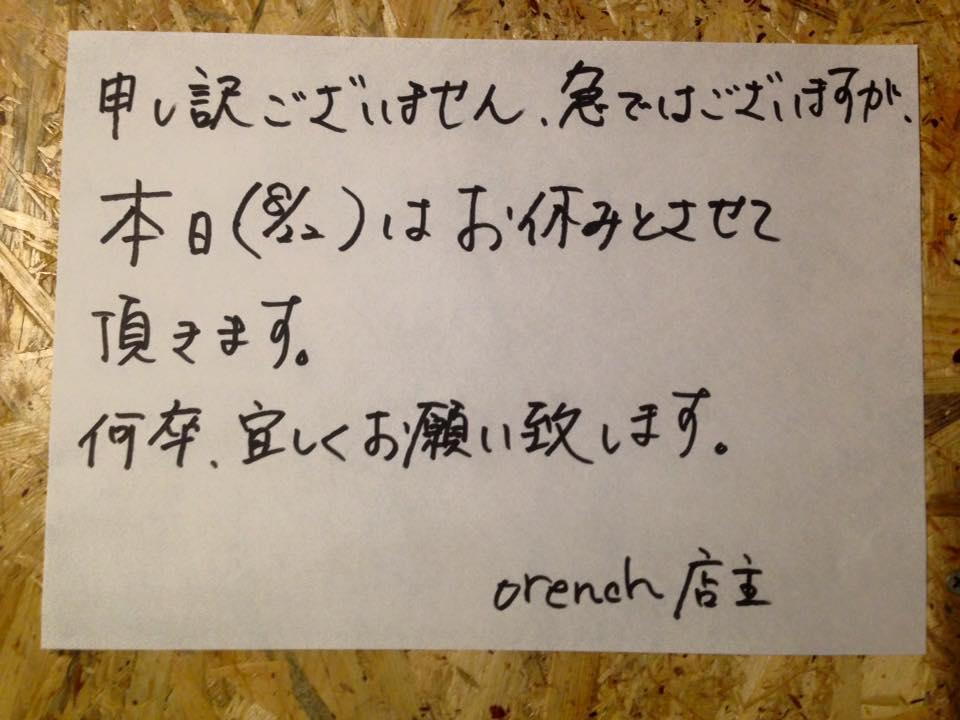 申し訳ございません、急ではございますが、
本日(8/22)はお休みとさせて
頂きます。
何卒、宜しくお願い致します。
orench 店主